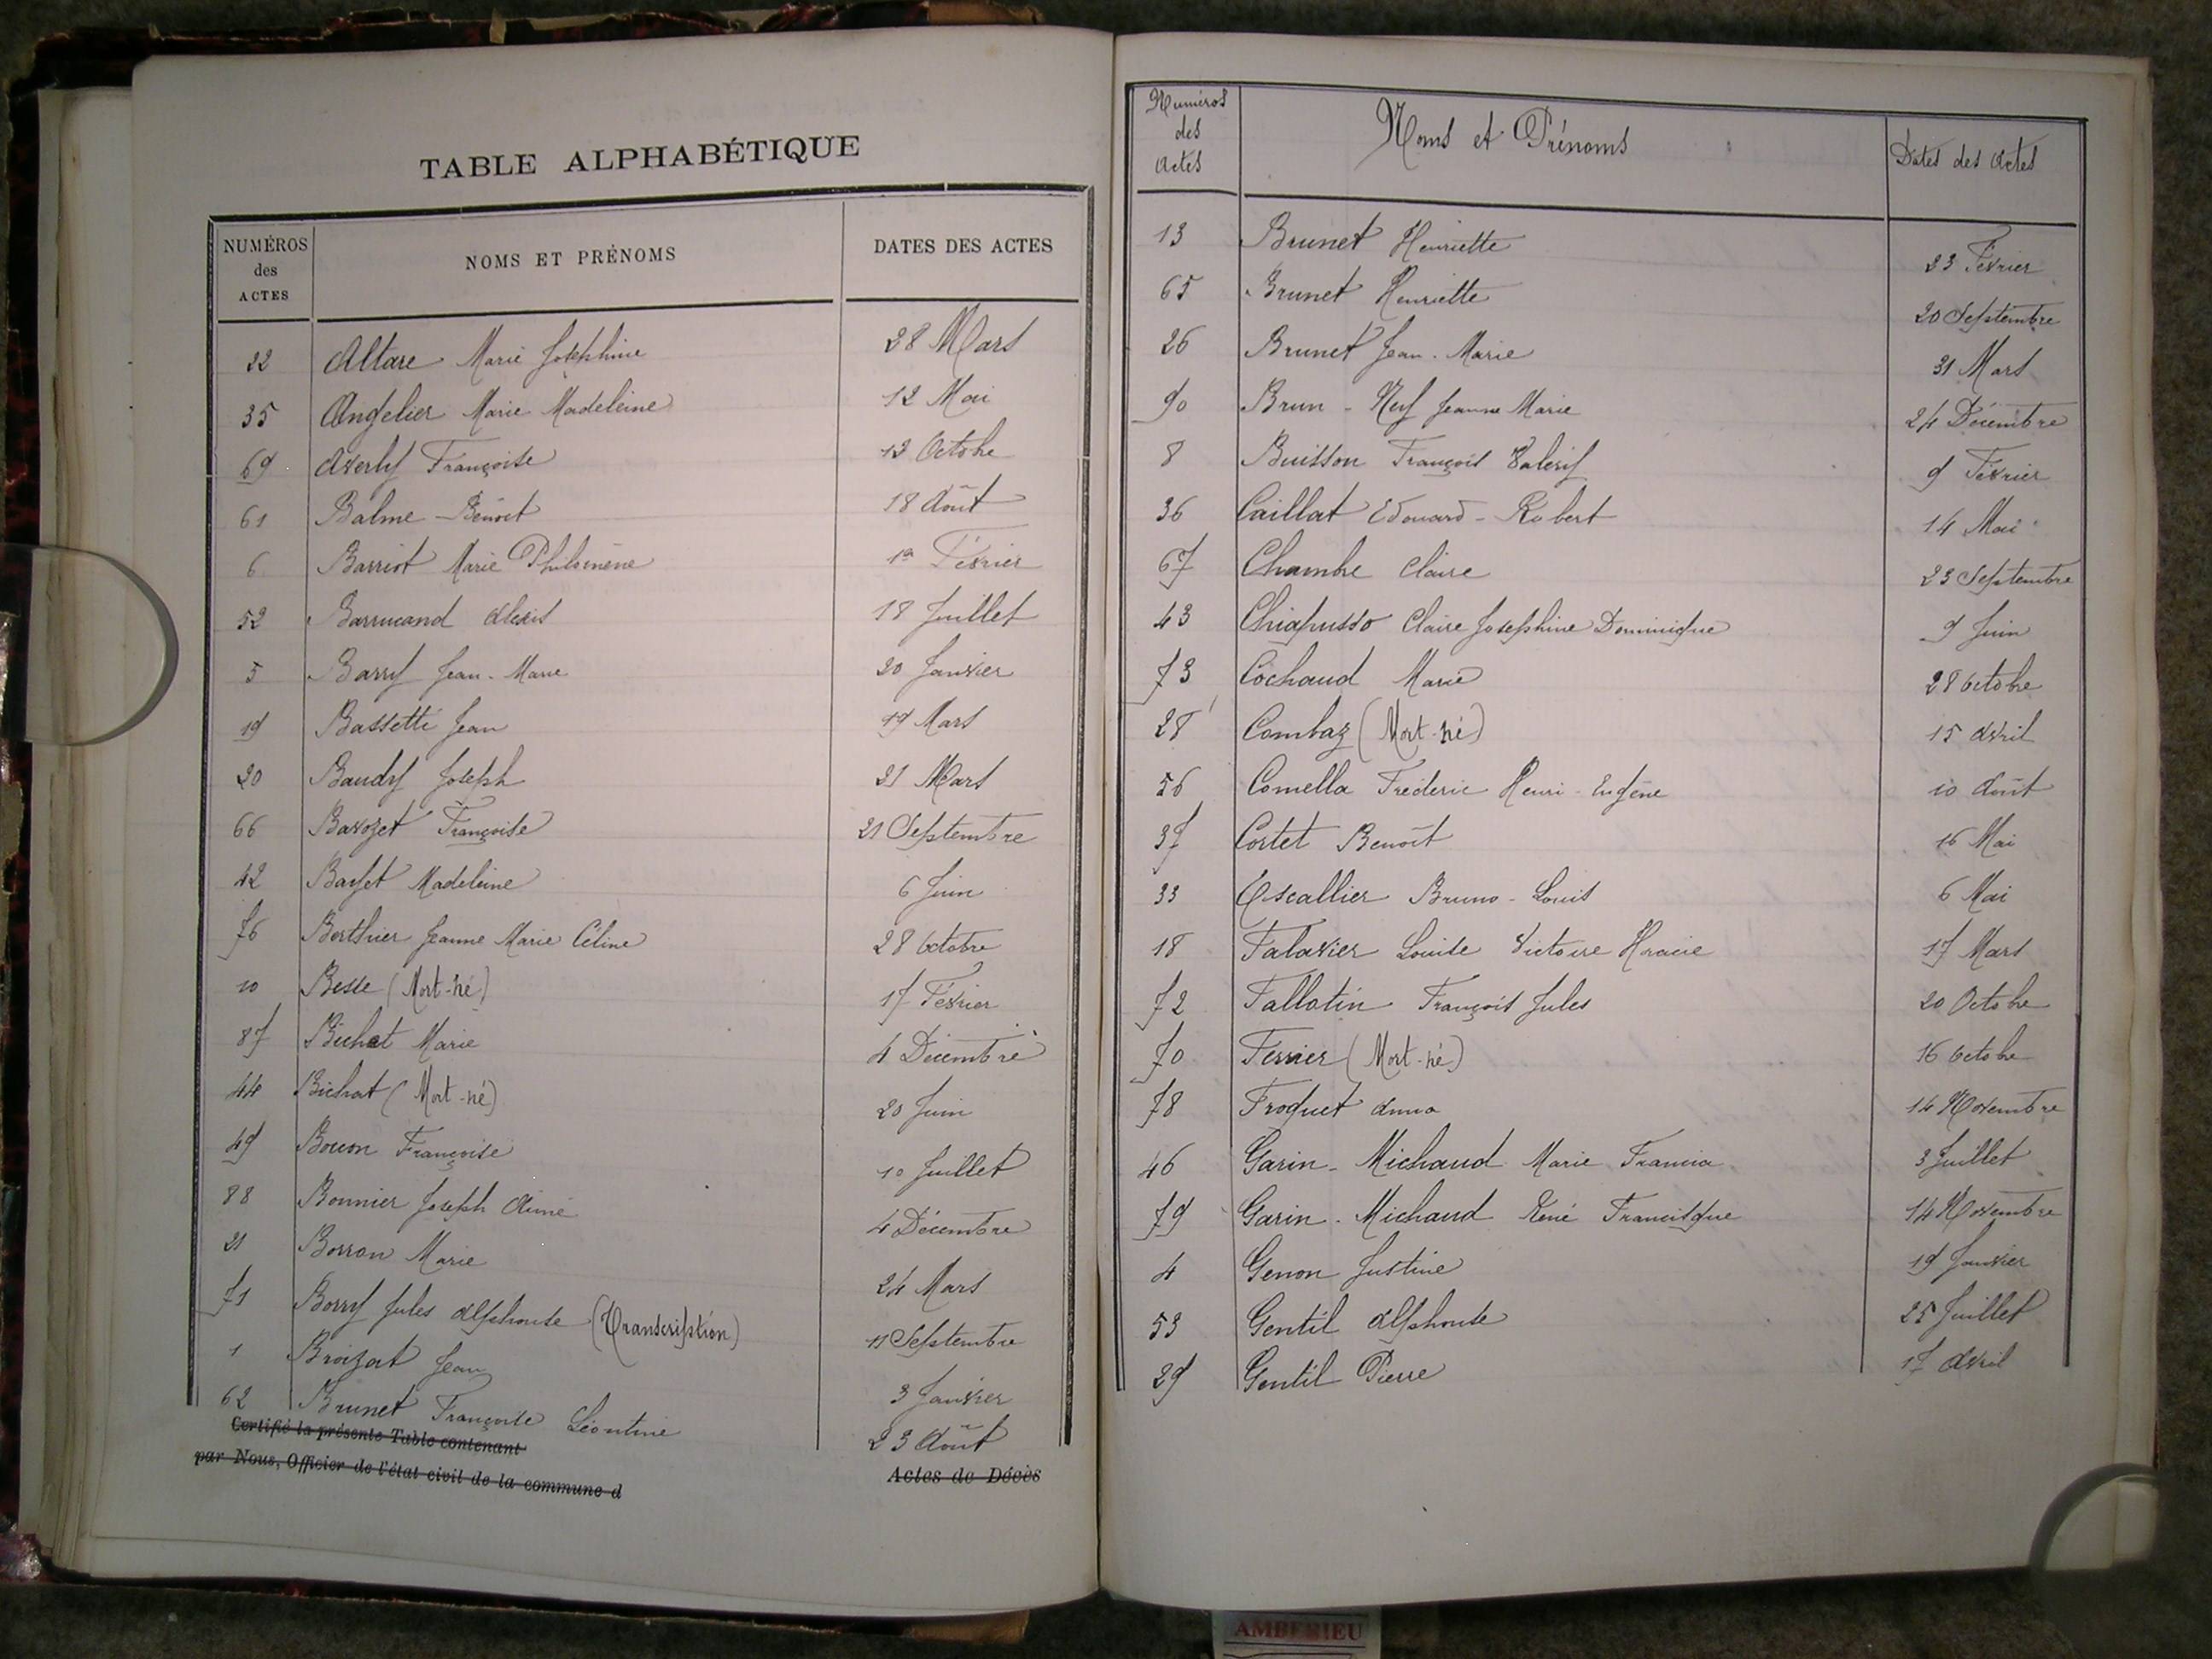 TABLE ALPHABÉTIQUE
NUMÉROS des ACTES NOMS ET PRÉNOMS DATES DES ACTES
22 Altare Marie Joséphine 28 Mars
35 Angelier Marie Madeleine 12 Mai
69 Averly Françoise 13 Octobre
61 Balme Benoit 18 Août
6 Barriot Marie Philomène 1er Février
52 Barrucand Alexis 18 Juillet
5 Barry Jean-Marie 20 Janvier
19 Bassetti Jean 19 Mars
20 Baudy Joseph 21 Mars
66 Bavozet Françoise 21 Septembre
42 Bayet Madeleine 6 Juin
76 Berthier Jeanne Marie Céline 28 Octobre
10 Besse (Mort-né) 17 Février
87 Bichat Marie 4 Décembre
44 Bichat (Mort-né) 20 Juin
49 Bocon Françoise 10 Juillet
88 Bonnier Joseph Aimé 4 Décembre
21 Borron Marie 24 Mars
71 Borry Jules Alphonse (Transcription) 11 Septembre
1 Broizat Jean 3 Janvier
62 Brunet Françoise Léontine 23 Août
Certifié la présente Table contenant Actes de Décès
par Nous, Officier de l'état civil de la commune d
Numéros des Actes Noms et Prénoms Dates des Actes
13 Brunet Henriette 23 Février
65 Brunet Henriette 20 Septembre
26 Brunet Jean-Marie 31 Mars
90 Brun-Neuf Jeanne Marie 24 Décembre
8 Buisson François Valéry 9 Février
36 Caillat Edouard-Robert 14 Mai
67 Chambre Claire 23 Septembre
43 Chiapusso Claire Joséphine Dominique 9 Juin
73 Cochaud Marie 28 Octobre
28 Combaz (Mort-né) 15 Avril
56 Comella Fréderic Henri-Eugène 10 Août
37 Cortet Benoît 16 Mai
33 Escallier Bruno-Louis 6 Mai
18 Falavier Louise Victoire Horacie 17 Mars
72 Fallatin François Jules 20 Octobre
70 Ferrier (Mort-né) 16 Octobre
78 Froquet Anna 14 Novembre
46 Garin-Michaud Marie Francia 3 Juillet
79 Garin-Michaud René Francisque 14 Novembre
4 Genon Justine 19 Janvier
53 Gentil Alphonse 25 Juillet
29 Gentil Pierre 17 Avril
AMBERIEU